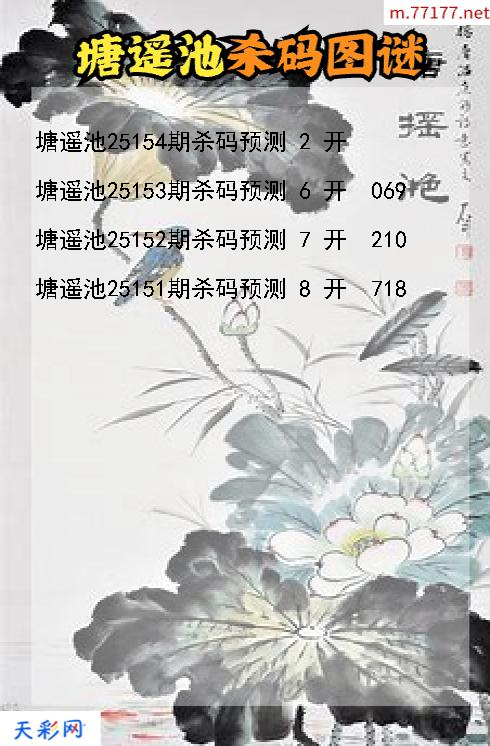 m.77177.net
塘遥池杀码图谜
塘遥池25154期杀码预测 2 开
塘遥池25153期杀码预测 6 开 069
塘遥池25152期杀码预测 7 开 210
塘遥池25151期杀码预测 8 开 718
摇
滟
天彩网